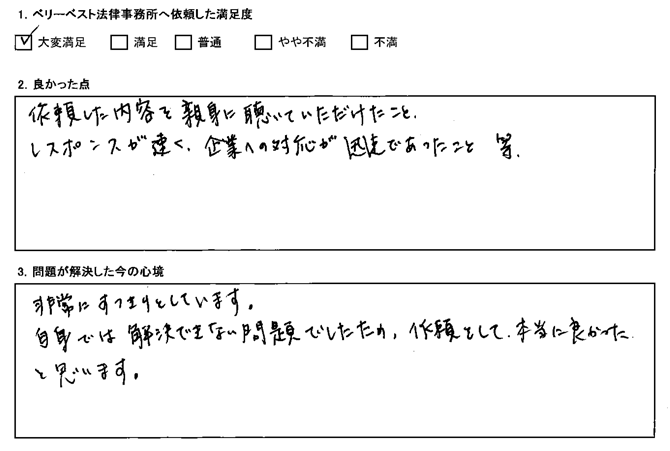 1. ベリーベスト法律事務所へ依頼した満足度
☑ 大変満足 □ 満足 □ 普通 □ やや不満 □ 不満
2. 良かった点
依頼した内容を親身に聴いていただけたこと.
レスポンスが速く、企業への対応が迅速であったこと 等.
3. 問題が解決した今の心境
非常にすっきりとしています。
自身では解決できない問題でしたため、依頼をして、本当に良かった
と思います。